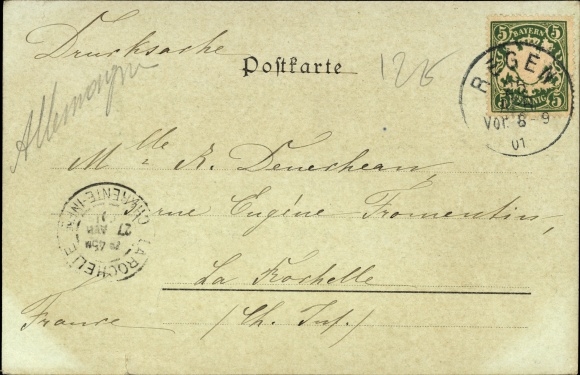 Drucksache
Postkarte
126
Allemagne
BAYERN
5 5
5 5
PFENNIG
REGEN
Vor. 8-9
01
Mlle R. Denecheau,
rue Eugène Fromentin,
La Rochelle
France (Ch. Inf.)
LA ROCHELLE
CHARENTE-INFRE
27 AVR